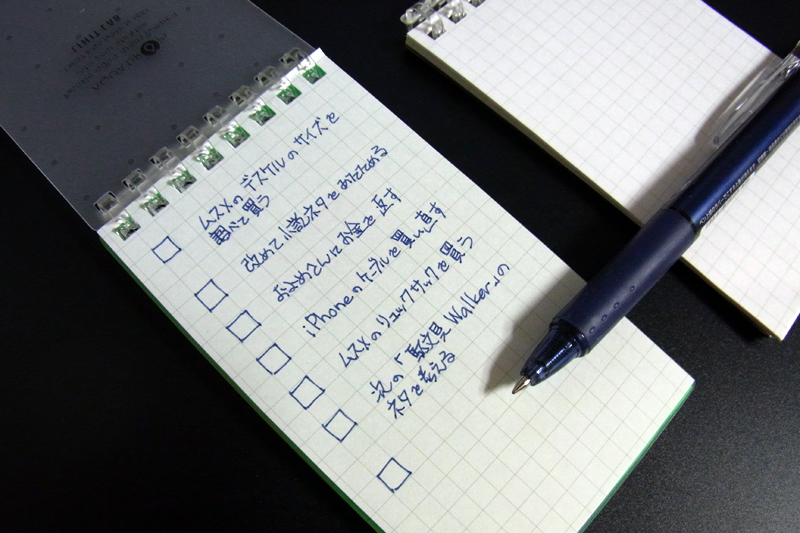 ムスメの デスケルの サイズを
調べて買う
改めて小説ネタをあたためる
およめさんにお金を返す
iPhoneのケーブルを買い直す
ムスメのリュックサックを買う
次の「駄文具Walker」の
ネタを考える